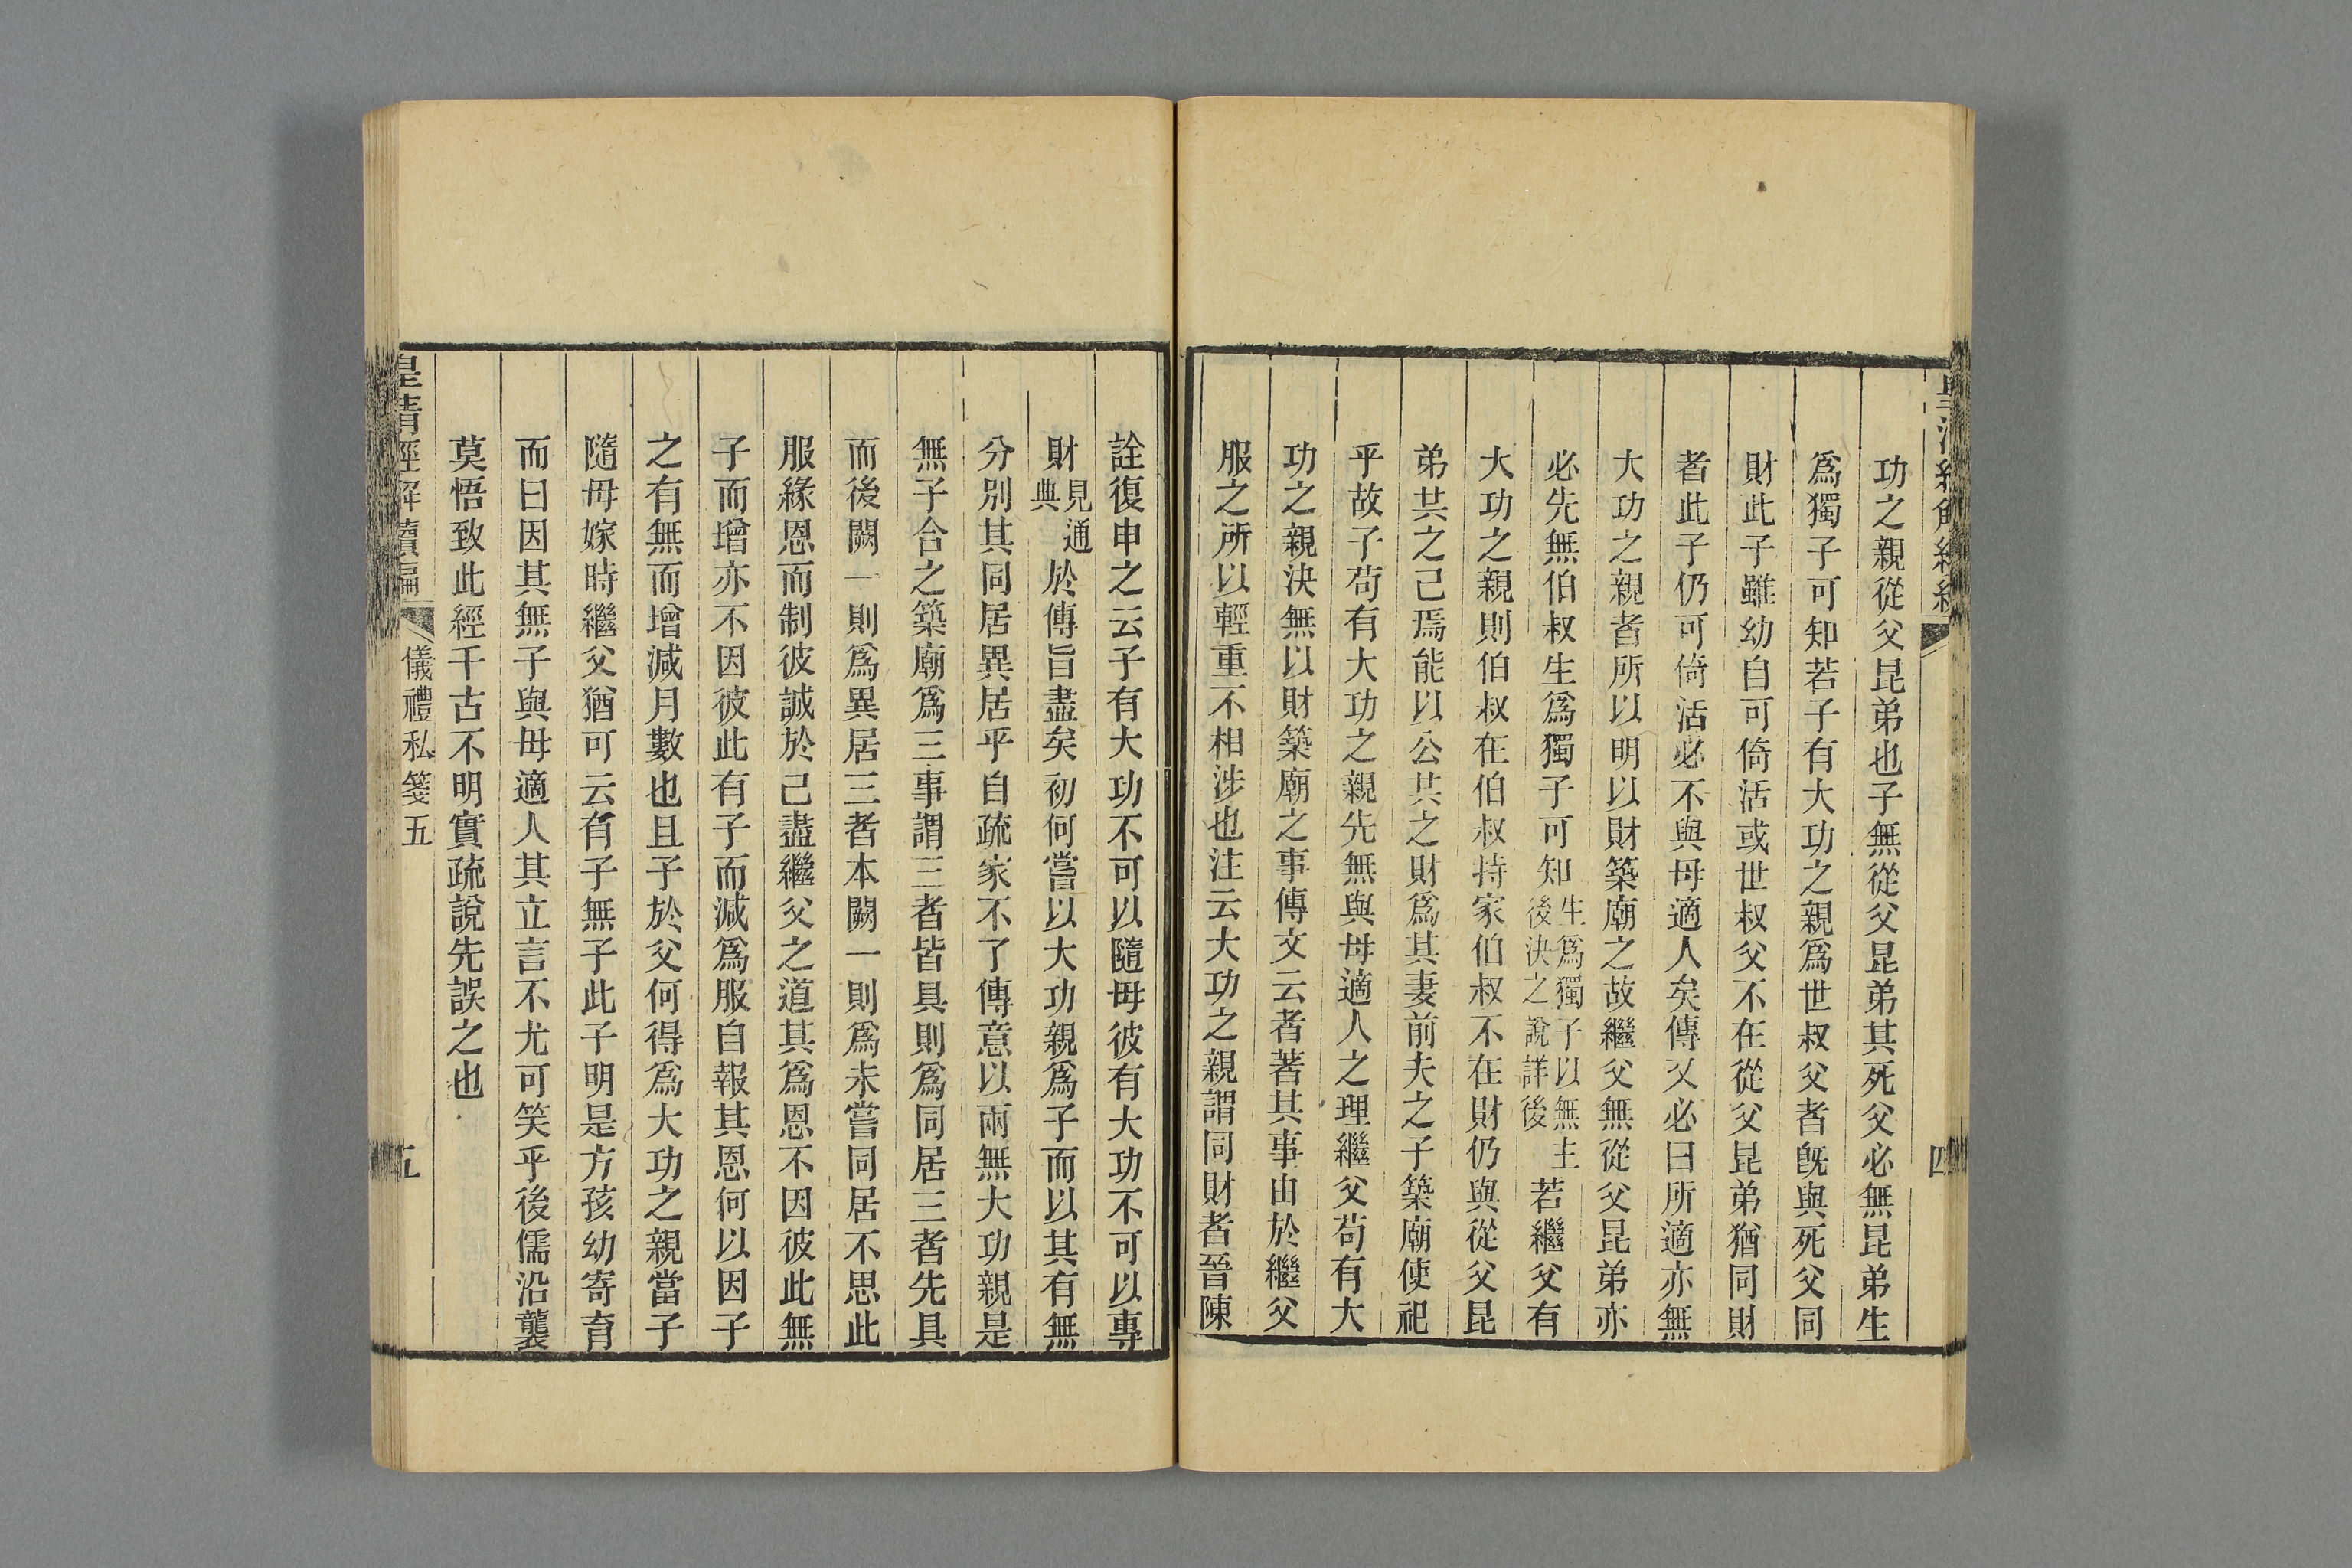 功之親從父昆弟也子無從父昆弟其死父必無昆弟生
爲獨子可知若子有大功之親爲世叔父者旣與死父同
財此子雖幼自可倚活或世叔父不在從父昆弟猶同財
者此子仍可倚活必不與母適人矣傳又必曰所適亦無
大功之親者所以明以財築廟之故繼父無從父昆弟亦
必先無伯叔生爲獨子可知生爲獨子以無主後決之說詳後若繼父有
大功之親則伯叔在伯叔持家伯叔不在財仍與從父昆
弟共之己焉能以公共之財爲其妻前夫之子築廟使祀
乎故子苟有大功之親先無與母適人之理繼父苟有大
功之親決無以財築廟之事傳文云者著其事由於繼父
服之所以輕重不相涉也注云大功之親謂同財者晉陳
四
詮復申之云子有大功不可以隨母彼有大功不可以專
財見通典於傳旨盡矣初何嘗以大功親爲子而以其有無
分別其同居異居乎自疏家不了傳意以兩無大功親是
無子合之築廟爲三事謂三者皆具則爲同居三者先具
而後闕一則爲異居三者本闕一則爲未嘗同居不思此
服緣恩而制彼誠於己盡繼父之道其爲恩不因彼此無
子而增亦不因彼此有子而減爲服自報其恩何以因子
之有無而增減月數也且子於父何得爲大功之親當子
隨母嫁時繼父猶可云有子無子此子明是方孩幼寄育
而曰因其無子與母適人其立言不尤可笑乎後儒沿襲
莫悟致此經千古不明實疏說先誤之也
皇淸經解續編
儀禮私箋五
五